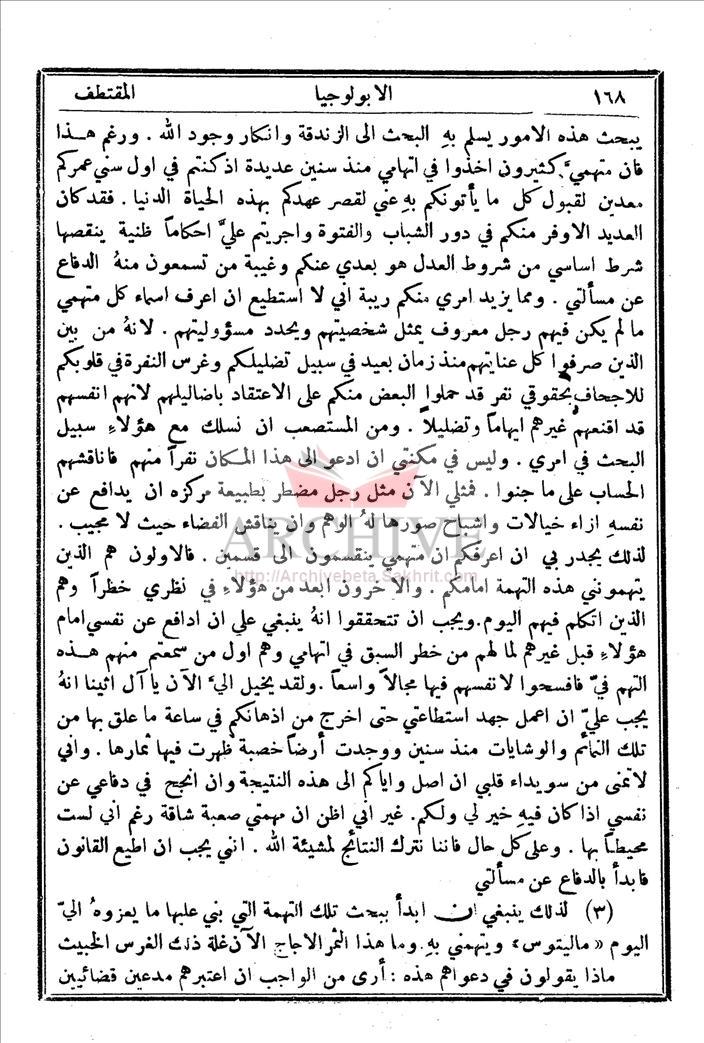 ١٦٨ الابولوجيا المقتطف
يبحث هذه الامور يسلم بهِ البحث الى الزندقة وانكار وجود الله . ورغم هذا
فان متهميَّ كثيرون اخذوا في اتهامي منذ سنين عديدة اذ كنتم في اول سني عمركم
معدين لقبول كل ما يأتونكم بهِ عني لقصر عهدكم بهذه الحياة الدنيا . فقد كان
العديد الاوفر منكم في دور الشباب والفتوة واجريتم عليَّ احكاماً ظنية ينقصها
شرط اساسي من شروط العدل هو بعدي عنكم وغيبة من تسمعون منهُ الدفاع
عن مسألتي . ومما يزيد امري منكم ريبة اني لا استطيع ان اعرف اسماء كل متهمي
ما لم يكن فيهم رجل معروف يمثل شخصيتهم ويحدد مسؤوليتهم . لانهُ من بين
الذين صرفوا كل عنايتهم منذ زمان بعيد في سبيل تضليلكم وغرس النفرة في قلوبكم
للاجحاف بحقوقي نفر قد حملوا البعض منكم على الاعتقاد باضاليلهم لانهم انفسهم
قد اقنعهم غيرهم ايهاماً وتضليلاً . ومن المستصعب ان نسلك مع هؤلاءِ سبيل
البحث في امري . وليس في مكنتي ان ادعو الى هذا المكان نفراً منهم فاناقشهم
الحساب على ما جنوا . فمثلي الآن مثل رجل مضطر بطبيعة مركزه ان يدافع عن
نفسهِ ازاء خيالات واشباح صورها لهُ الوهم وان يناقش الفضاء حيث لا مجيب .
لذلك يجدر بي ان اعرفكم ان متهمي ينقسمون الى قسمين . فالاولون هم الذين
يتهمونني هذه التهمة امامكم . والآخرون ابعد من هؤلاءِ في نظري خطراً وهم
الذين اتكلم فيهم اليوم. ويجب ان تتحققوا انهُ ينبغي علي ان ادافع عن نفسي امام
هؤلاءِ قبل غيرهم لما لهم من خطر السبق في اتهامي وهم اول من سمعتم منهم هذه
التهم فيّ فافسحوا لانفسهم فيها مجالاً واسعاً . ولقد يخيل اليَّ الآن يا آل اثينا انهُ
يجب عليّ ان اعمل جهد استطاعتي حتى اخرج من اذهانكم في ساعة ما علق بها من
تلك النمائم والوشايات منذ سنين ووجدت أرضاً خصبة ظهرت فيها ثمارها . واني
لاتمنى من سويداء قلبي ان اصل واياكم الى هذه النتيجة وان انجح في دفاعي عن
نفسي اذا كان فيهِ خير لي ولكم. غير اني اظن ان مهمتي صعبة شاقة رغم اني لست
محيطاً بها . وعلى كل حال فاننا نترك النتائج لمشيئة الله . انني يجب ان اطيع القانون
فابدأ بالدفاع عن مسألتي
(٣) لذلك ينبغي ان ابدأ ببحث تلك التهمة التي بني عليها ما يعزوهُ اليّ
اليوم «ماليتوس» ويتهمني بهِ. وما هذا الثمر الاجاج الآن غلة ذلك الغرس الخبيث
ماذا يقولون في دعواهم هذه : أرى من الواجب ان اعتبرهم مدعين قضائيين
ARCHIVE
http://Archivebeta.Sakhrit.com